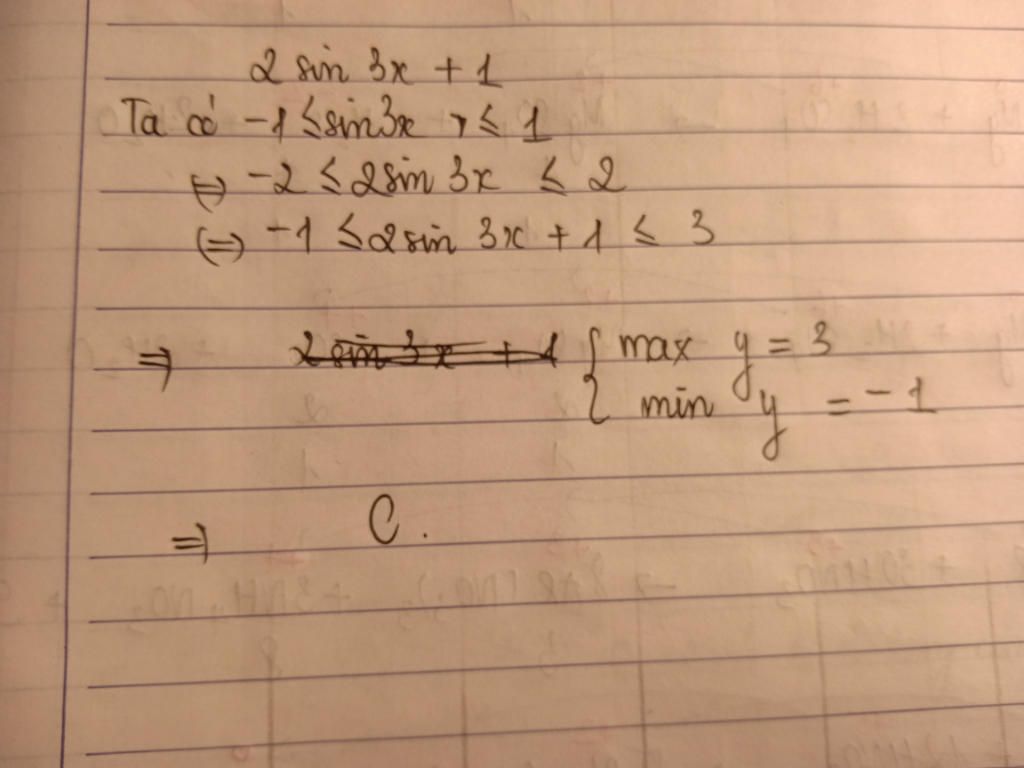 2 sin 3x + 1
Ta có -1 ≤ sin3x ≤ 1
⇔ -2 ≤ 2sin 3x ≤ 2
⇔ -1 ≤ 2sin 3x + 1 ≤ 3
⇒ 2 sin 3x + 1 { max y = 3
min y = -1
⇒ C.